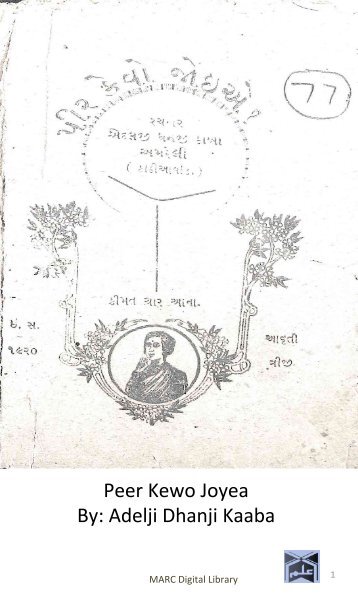 પીર કેવો જોઇએ?
77
રચનાર
એદલજી ધનજી કાબા
અમરેલી
( કાઠીઆવાડ. )
કીંમત ચાર આના.
ઇ. સ.
૧૯૨૦
આવૃતી
ત્રીજી
Peer Kewo Joyea
By: Adelji Dhanji Kaaba
MARC Digital Library
علم
1